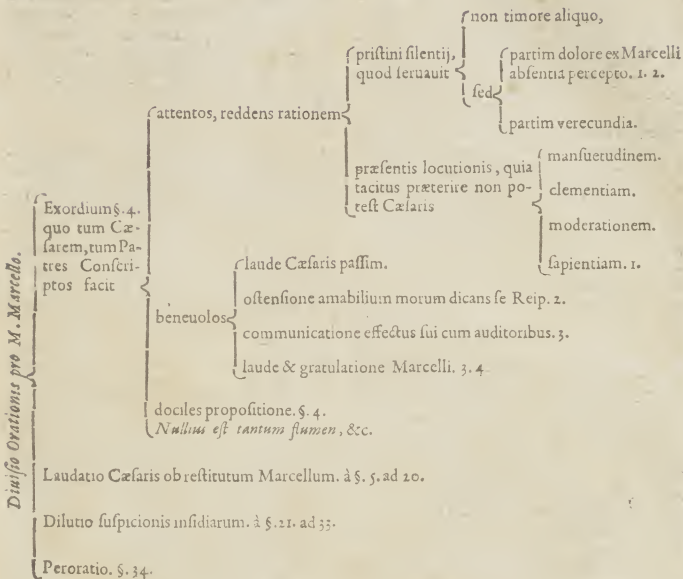 Diuisio Orationis pro M. Marcello.
Exordium §. 4.
quo tum Cæ-
sarem, tum Pa-
tres Conscri-
ptos facit
attentos, reddens rationem
pristini silentij,
quod seruauit
non timore aliquo,
sed
partim dolore ex Marcelli
absentia percepto. 1. 2.
partim verecundia.
præsentis locutionis, quia
tacitus præterire non po-
test Cæsaris
mansuetudinem.
clementiam.
moderationem.
sapientiam. 1.
beneuolos
laude Cæsaris passim.
ostensione amabilium morum dicans se Reip. 2.
communicatione effectus sui cum auditoribus. 3.
laude & gratulatione Marcelli. 3. 4
dociles propositione. §. 4.
Nullius est tantum flumen, &c.
Laudatio Cæsaris ob restitutum Marcellum. à §. 5. ad 20.
Dilutio suspicionis insidiarum. à §. 21. ad 33.
Peroratio. §. 34.